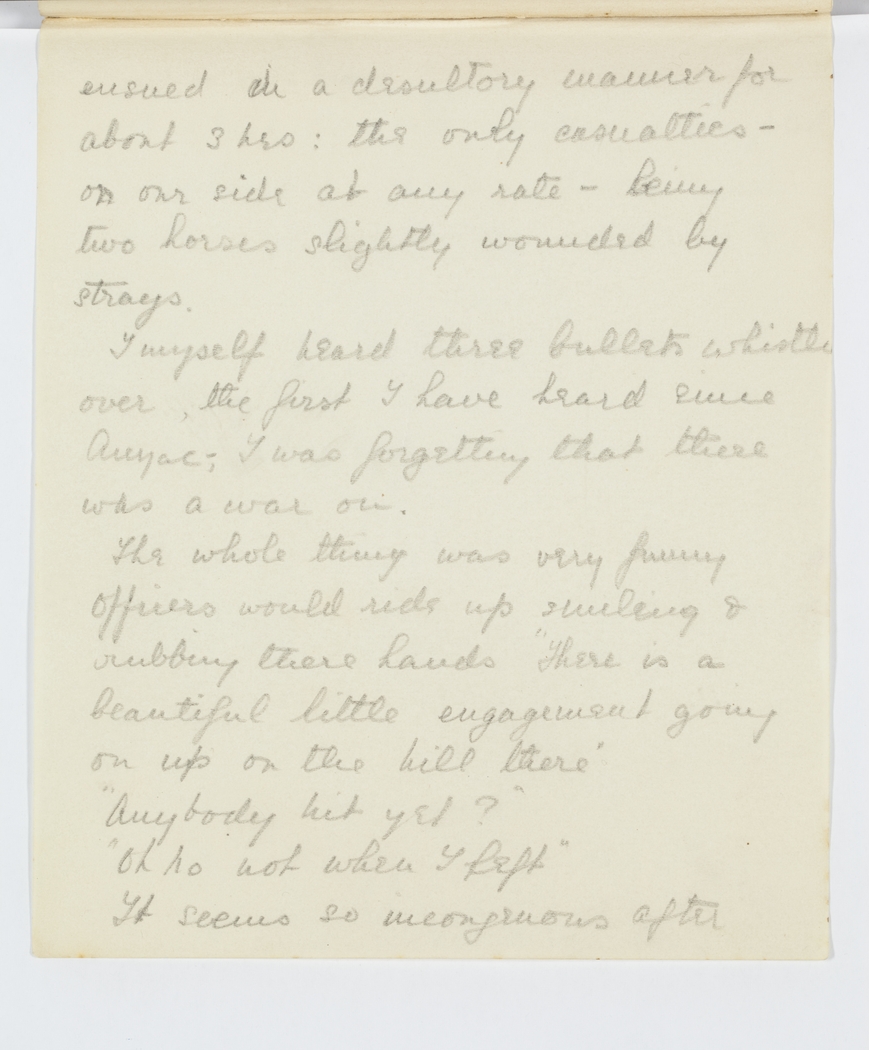 ensued in a desultory manner for
about 3 hrs : the only casualties -
on our side at any rate - being
two horses slightly wounded by
strays.
I myself heard three bullets whistle
over, the first I have heard since
Anzac -; I was forgetting that there
was a war on.
The whole thing was very funny
Officers would ride up smiling &
rubbing there hands "There is a
beautiful little engagement going
on up on the hill there"
"Anybody hit yet ?"
"Oh no not when I left"
It seems so incongruous after